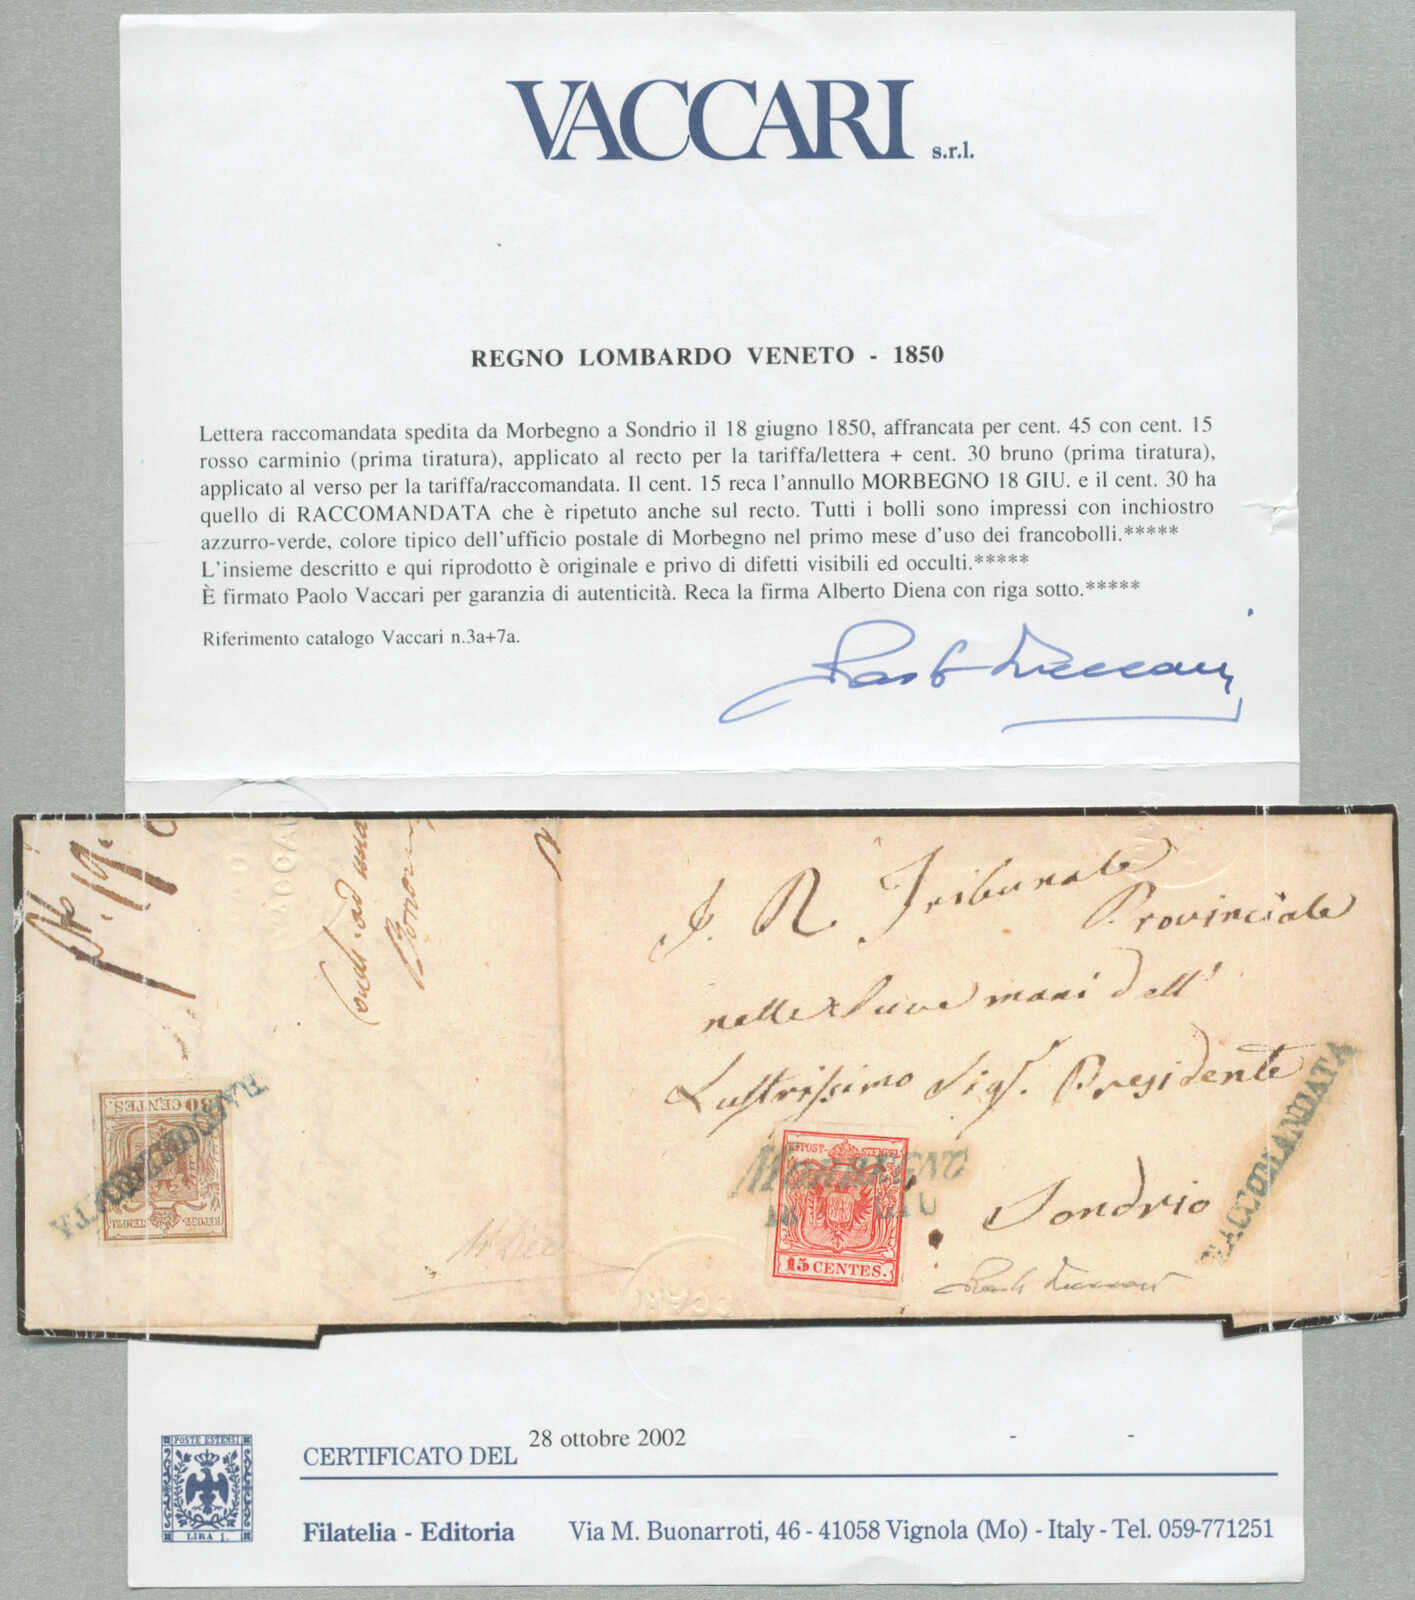 VACCARI s.r.l.
REGNO LOMBARDO VENETO - 1850
Lettera raccomandata spedita da Morbegno a Sondrio il 18 giugno 1850, affrancata per cent. 45 con cent. 15
rosso carminio (prima tiratura), applicato al recto per la tariffa/lettera + cent. 30 bruno (prima tiratura),
applicato al verso per la tariffa/raccomandata. Il cent. 15 reca l'annullo MORBEGNO 18 GIU. e il cent. 30 ha
quello di RACCOMANDATA che è ripetuto anche sul recto. Tutti i bolli sono impressi con inchiostro
azzurro-verde, colore tipico dell'ufficio postale di Morbegno nel primo mese d'uso dei francobolli.*****
L'insieme descritto e qui riprodotto è originale e privo di difetti visibili ed occulti.*****
È firmato Paolo Vaccari per garanzia di autenticità. Reca la firma Alberto Diena con riga sotto.*****
Riferimento catalogo Vaccari n.3a+7a.
VACCARI
I. R. Tribunale
Provinciale
mani dell'
Lustrissimo Sigr. Presidente
Sondrio
RACCOMANDATA
MORBEGNO
18 GIU
KKPOST-STEMPEL
15 CENTES.
30 CENTES.
RACCOMANDATA
POSTE ESTENSI
LIRA 1.
CERTIFICATO DEL 28 ottobre 2002
- -
Filatelia - Editoria Via M. Buonarroti, 46 - 41058 Vignola (Mo) - Italy - Tel. 059-771251